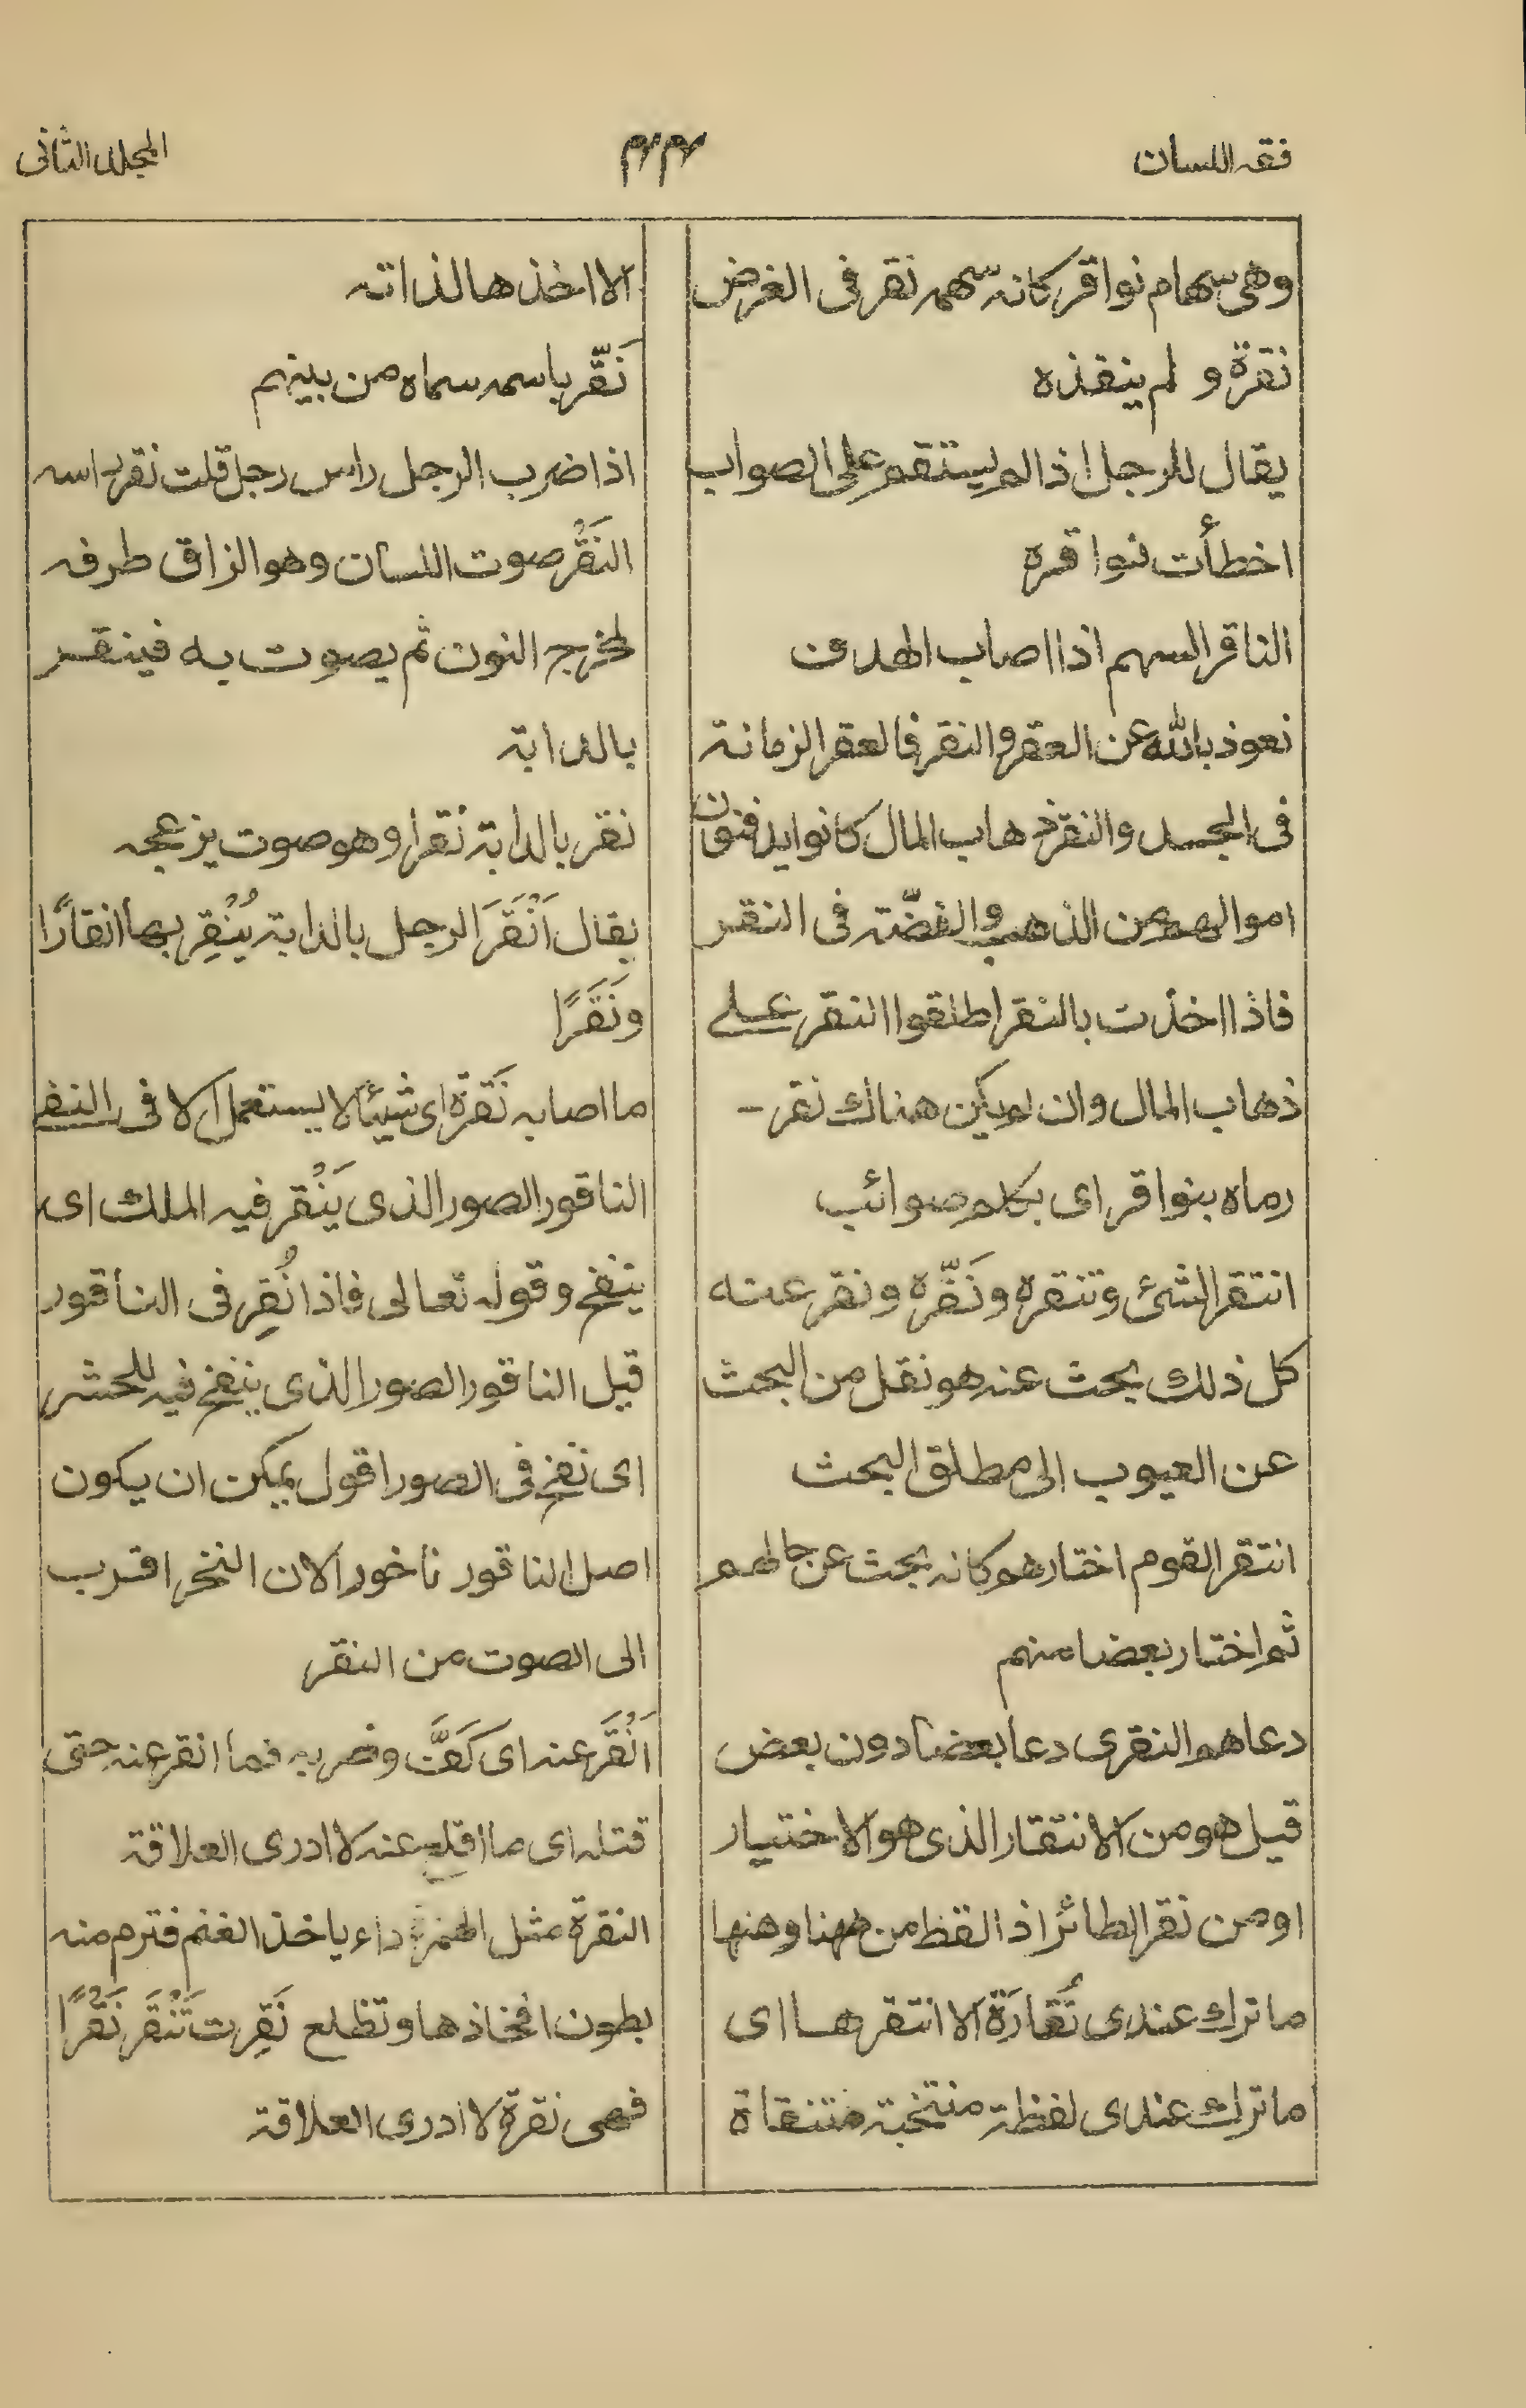 فقہ اللسان
۴۴
المجلد الثانی
وهی سهام نواقر کانہ سهم نقر فی الغرض
نقرة و لم ینفذہ
یقال للرجل اذا لم یستقم علی الصواب
اخطأت نواقرہ
الناقر السهم اذا اصاب الهدف
نعوذ باللہ من العقر والنقر فالعقر الزمانة
فی الجسد والنقر ذهاب المال کانوا یدفنون
اموالهم من الذهب والفضّة فی النقر
فاذا اخذت بالنقر اطلقوا النقر علی
ذهاب المال وان لم یکن هناك نقر -
رماہ بنواقر ای بکلم صوائب
انتقر الشیٔ وتنقرہ ونَقّرہ ونقر عنہ
کل ذلك بحث عنہ هو نقل من البحث
عن العیوب الی مطلق البحث
انتقر القوم اختارهم کانہ بحث عن حالهم
ثم اختار بعضا منهم
دعاهم النقری دعا بعضا دون بعض
قیل هو من الانتقار الذی هو الاختیار
او من نقر الطائر اذ القط من ههنا وهنها
ما ترك عندی نُقَارَة الا انتقرها ای
ما ترك عندی لفظة منتخبة منتقاة
الا اخذها لذاتہ
نَقّر باسمہ سماہ من بینهم
اذا ضرب الرجل راس رجل قلت نقر راسہ
النَقْر صوت اللسان وهو الزاق طرفہ
لمخرج النون ثم یصوت بہ فینقر
بالدابة
نقر بالدابة نقرا وهو صوت یزعجہ
یقال اَنْقَرَ الرجل بالدابة یُنْقِر بها انقارًا
ونَقَرًا
ما اصابہ نَقَرَة ای شیئًا لا یستعمل الا فی النفی
الناقور الصور الذی یَنْقر فیہ الملك ای
ینفخ وقولہ تعالی فاذا نُقِر فی الناقور
قیل الناقور الصور الذی ینفخ فیہ للحشر
ای نفخ فی الصور اقول یمکن ان یکون
اصل الناقور ناخور الان النخر اقرب
الی الصوت من النقر
اَنْقَر عنہ ای کَفَّ وضربہ فما انقر عنہ حتی
قتلہ ای ما اقلع عنہ لا ادری العلاقة
النقرة مثل الهمزة داء یاخذ الغنم فترم منہ
بطون افخاذها وتظلع نَقِرت تَنْقَر نَقَرًا
فهی نقرة لا ادری العلاقة